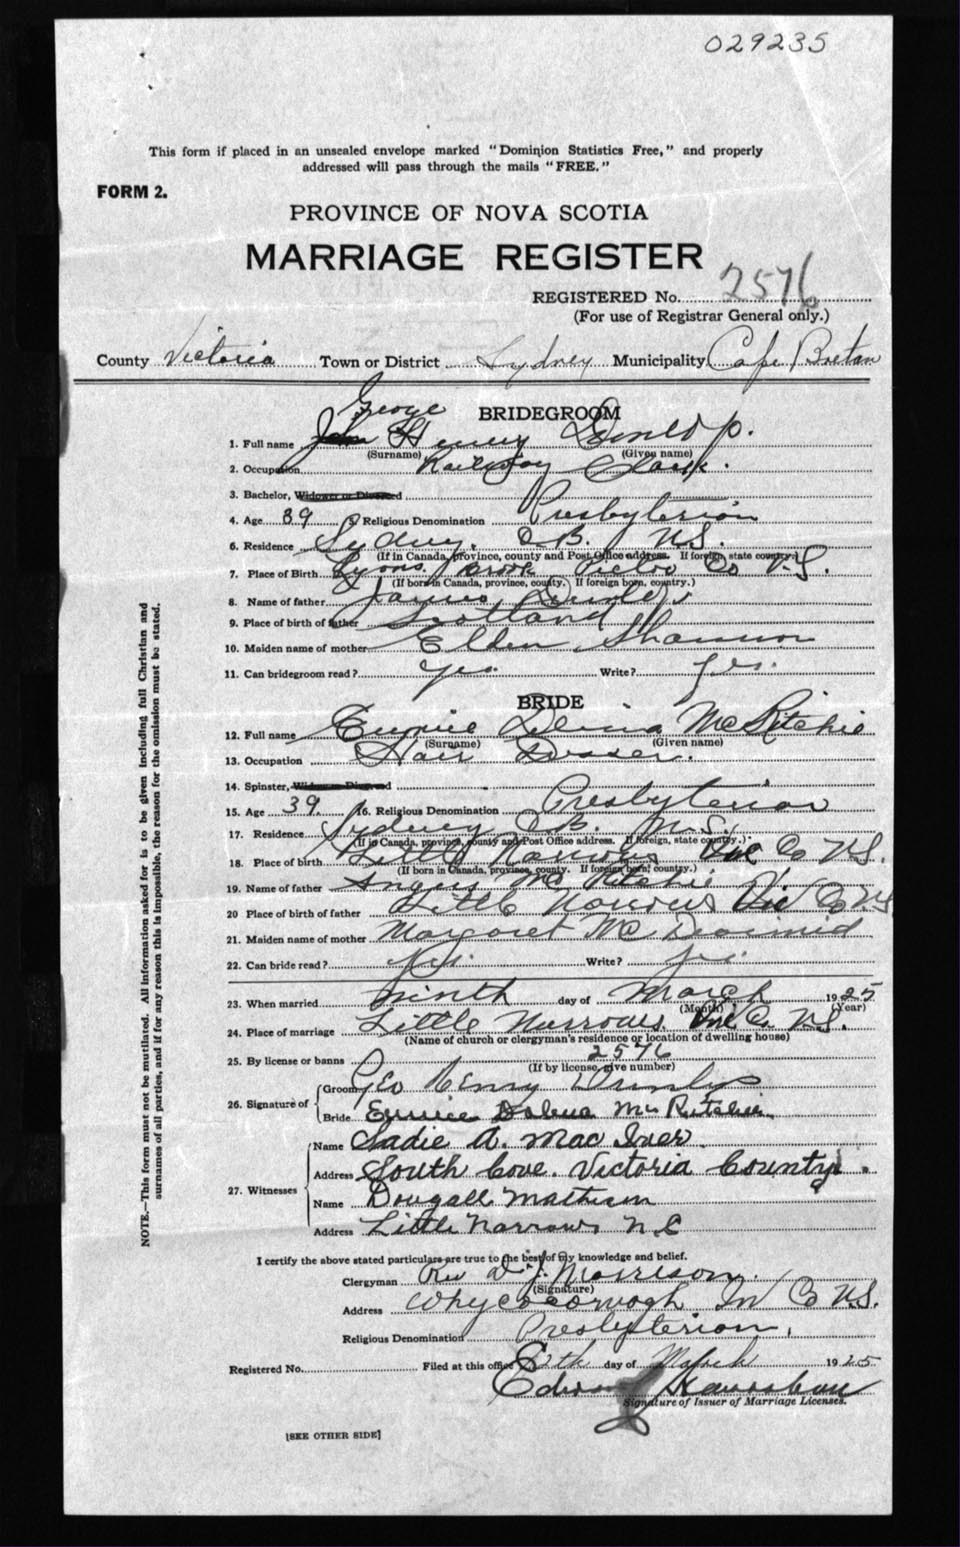 029235
This form if placed in an unsealed envelope marked "Dominion Statistics Free," and properly
addressed will pass through the mails "FREE."
FORM 2.
PROVINCE OF NOVA SCOTIA
MARRIAGE REGISTER
REGISTERED No. 2576
(For use of Registrar General only.)
County Victoria Town or District Sydney Municipality Cape Breton
George
BRIDEGROOM
1. Full name John Henry
(Surname) (Given name)
2. Occupation Railway Clerk.
3. Bachelor, Widower or Divorced
4. Age 39 5. Religious Denomination Presbyterian
6. Residence Sydney, C.B. N.S.
(If in Canada, province, county and Post Office address. If foreign, state country.)
7. Place of Birth Lyons Brook Pictou Co N.S.
(If born in Canada, province, county.) If foreign born, country.)
8. Name of father James
9. Place of birth of father Scotland
10. Maiden name of mother Ellen Shannon
11. Can bridegroom read? yes. Write? yes.
BRIDE
12. Full name Eunice McRitchie
(Surname) (Given name)
13. Occupation Hair
14. Spinster, Widow or Divorced
15. Age 39. 16. Religious Denomination Presbyterian
17. Residence Sydney C.B. N.S.
(If in Canada, province, county and Post Office address. If foreign, state country.)
18. Place of birth Little Narrows Vic Co N.S.
(If born in Canada, province, county. If foreign born, country.)
19. Name of father Angus McRitchie
20 Place of birth of father Little Narrows Vic Co NS
21. Maiden name of mother Margaret Mc
22. Can bride read? Yes. Write? yes.
23. When married ninth day of March 1925
(Month) (Year)
24. Place of marriage Little Narrows Vic Co. N.S.
(Name of church or clergyman's residence or location of dwelling house)
25. By license or banns 2576
(If by license, give number)
26. Signature of Groom Geo Henry
Bride Eunice McRitchie
27. Witnesses Name Sadie A. Mac Iver
Address South Cove. Victoria County.
Name Dougall Matheson
Address Little Narrows N.S
I certify the above stated particulars are true to the best of my knowledge and belief.
Clergyman Rev D. J. Morrison.
(Signature)
Address Whycocomagh In Co N.S.
Religious Denomination Presbyterian.
Registered No. Filed at this office day of March 1925
Signature of Issuer of Marriage Licenses.
[SEE OTHER SIDE]
NOTE.—This form must not be mutilated. All information asked for is to be given including full Christian and
surnames of all parties, and if for any reason this is impossible, the reason for the omission must be stated.